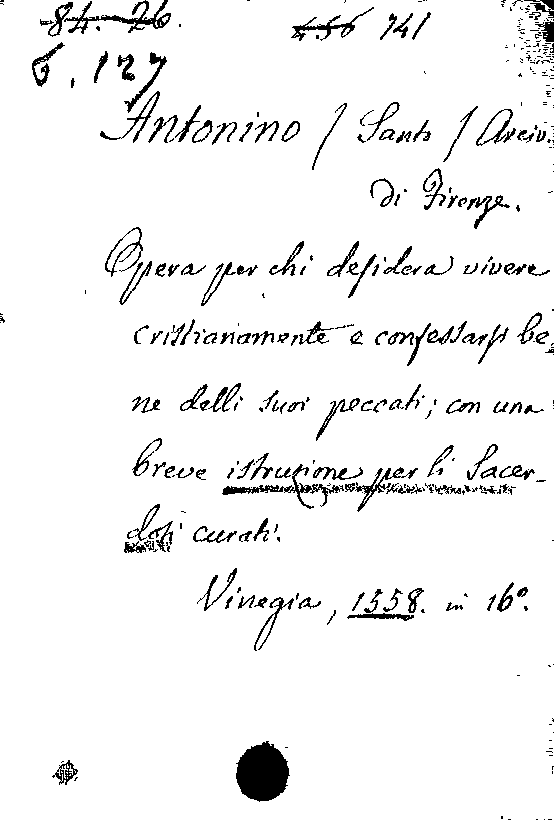 84. 26. 456 741
6. 127
Antonino / Santo / Arciv.
di Firenze.
Opera per chi desidera vivere
cristianamente e confessarsi be
ne delli suoi peccati; con una
breve istruzione per li Sacer-
doti curati.
Vinegia, 1558. in 16°.